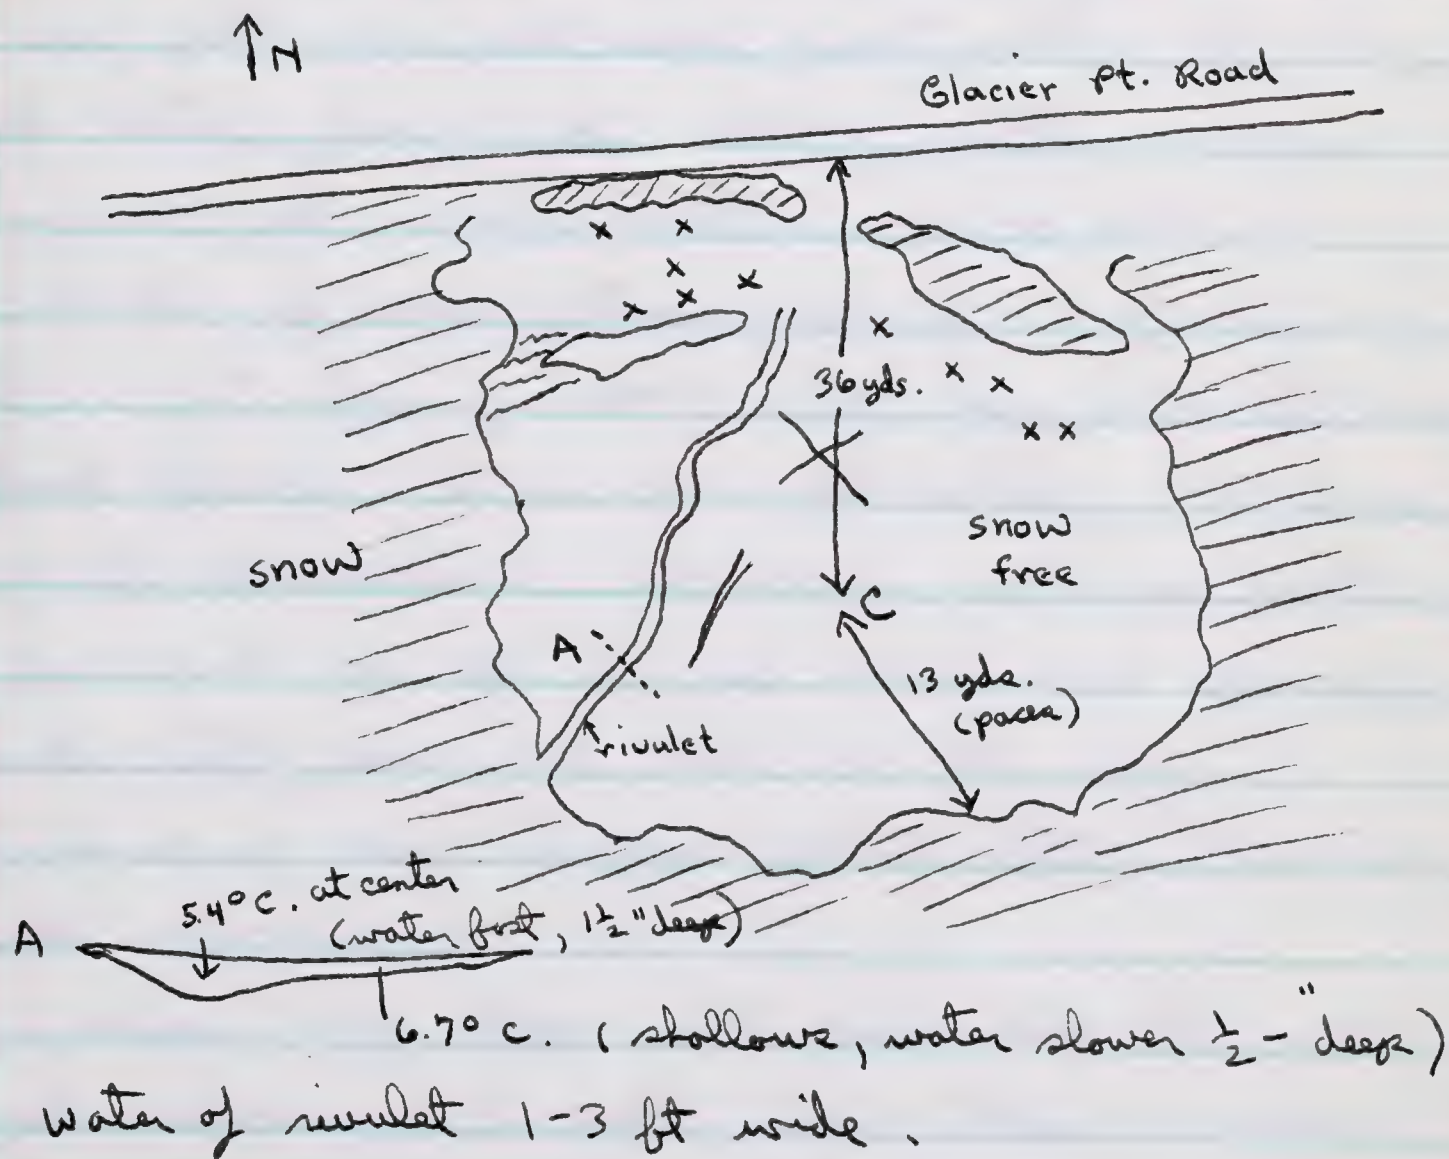 N
Glacier Pt. Road
x x
x
x x x
x
36 yds. x x
x x
snow
free
snow
C
A
13 yds.
(paces)
rivulet
5.4° C. at center
(water fast, 1½" deep)
A
6.7° C. (shallows, water slower ½-" deep)
water of rivulet 1-3 ft wide.